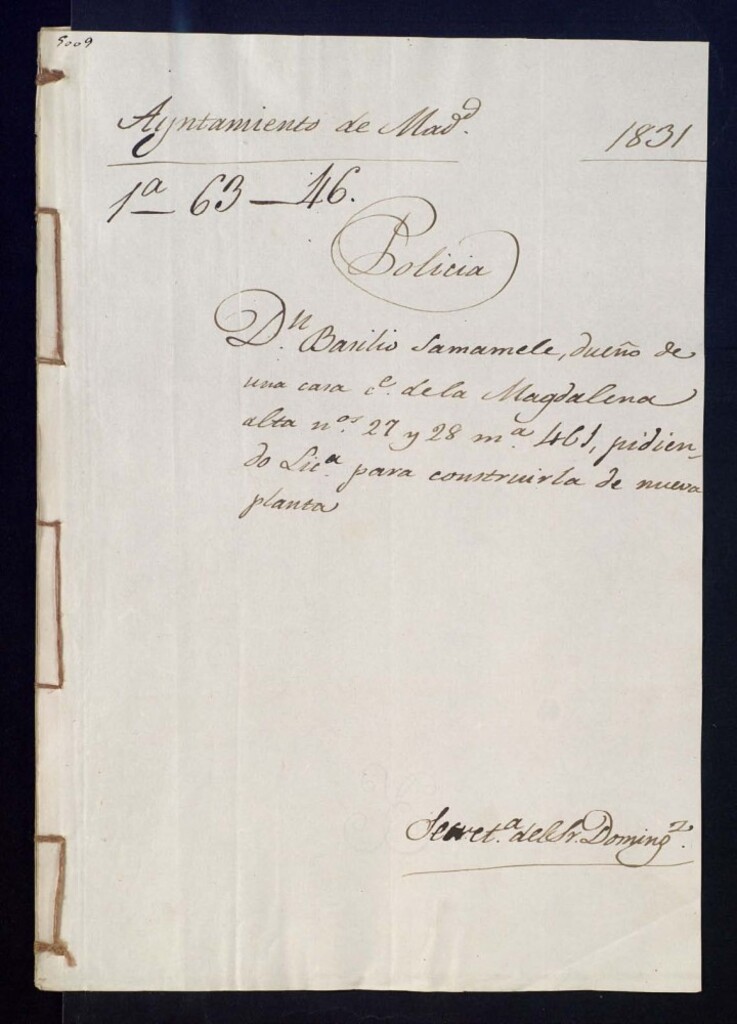 5009
Ayntamiento de Mad.d
1831
1a 63 — 46.
Policia
D.n Basilio Samamele, dueño de
una casa c.e de la Magdalena
alta n.os 27 y 28 m.a 461, pidien-
do Lic.a para construirla de nueva
planta
Secret.a del Sr. Doming.z